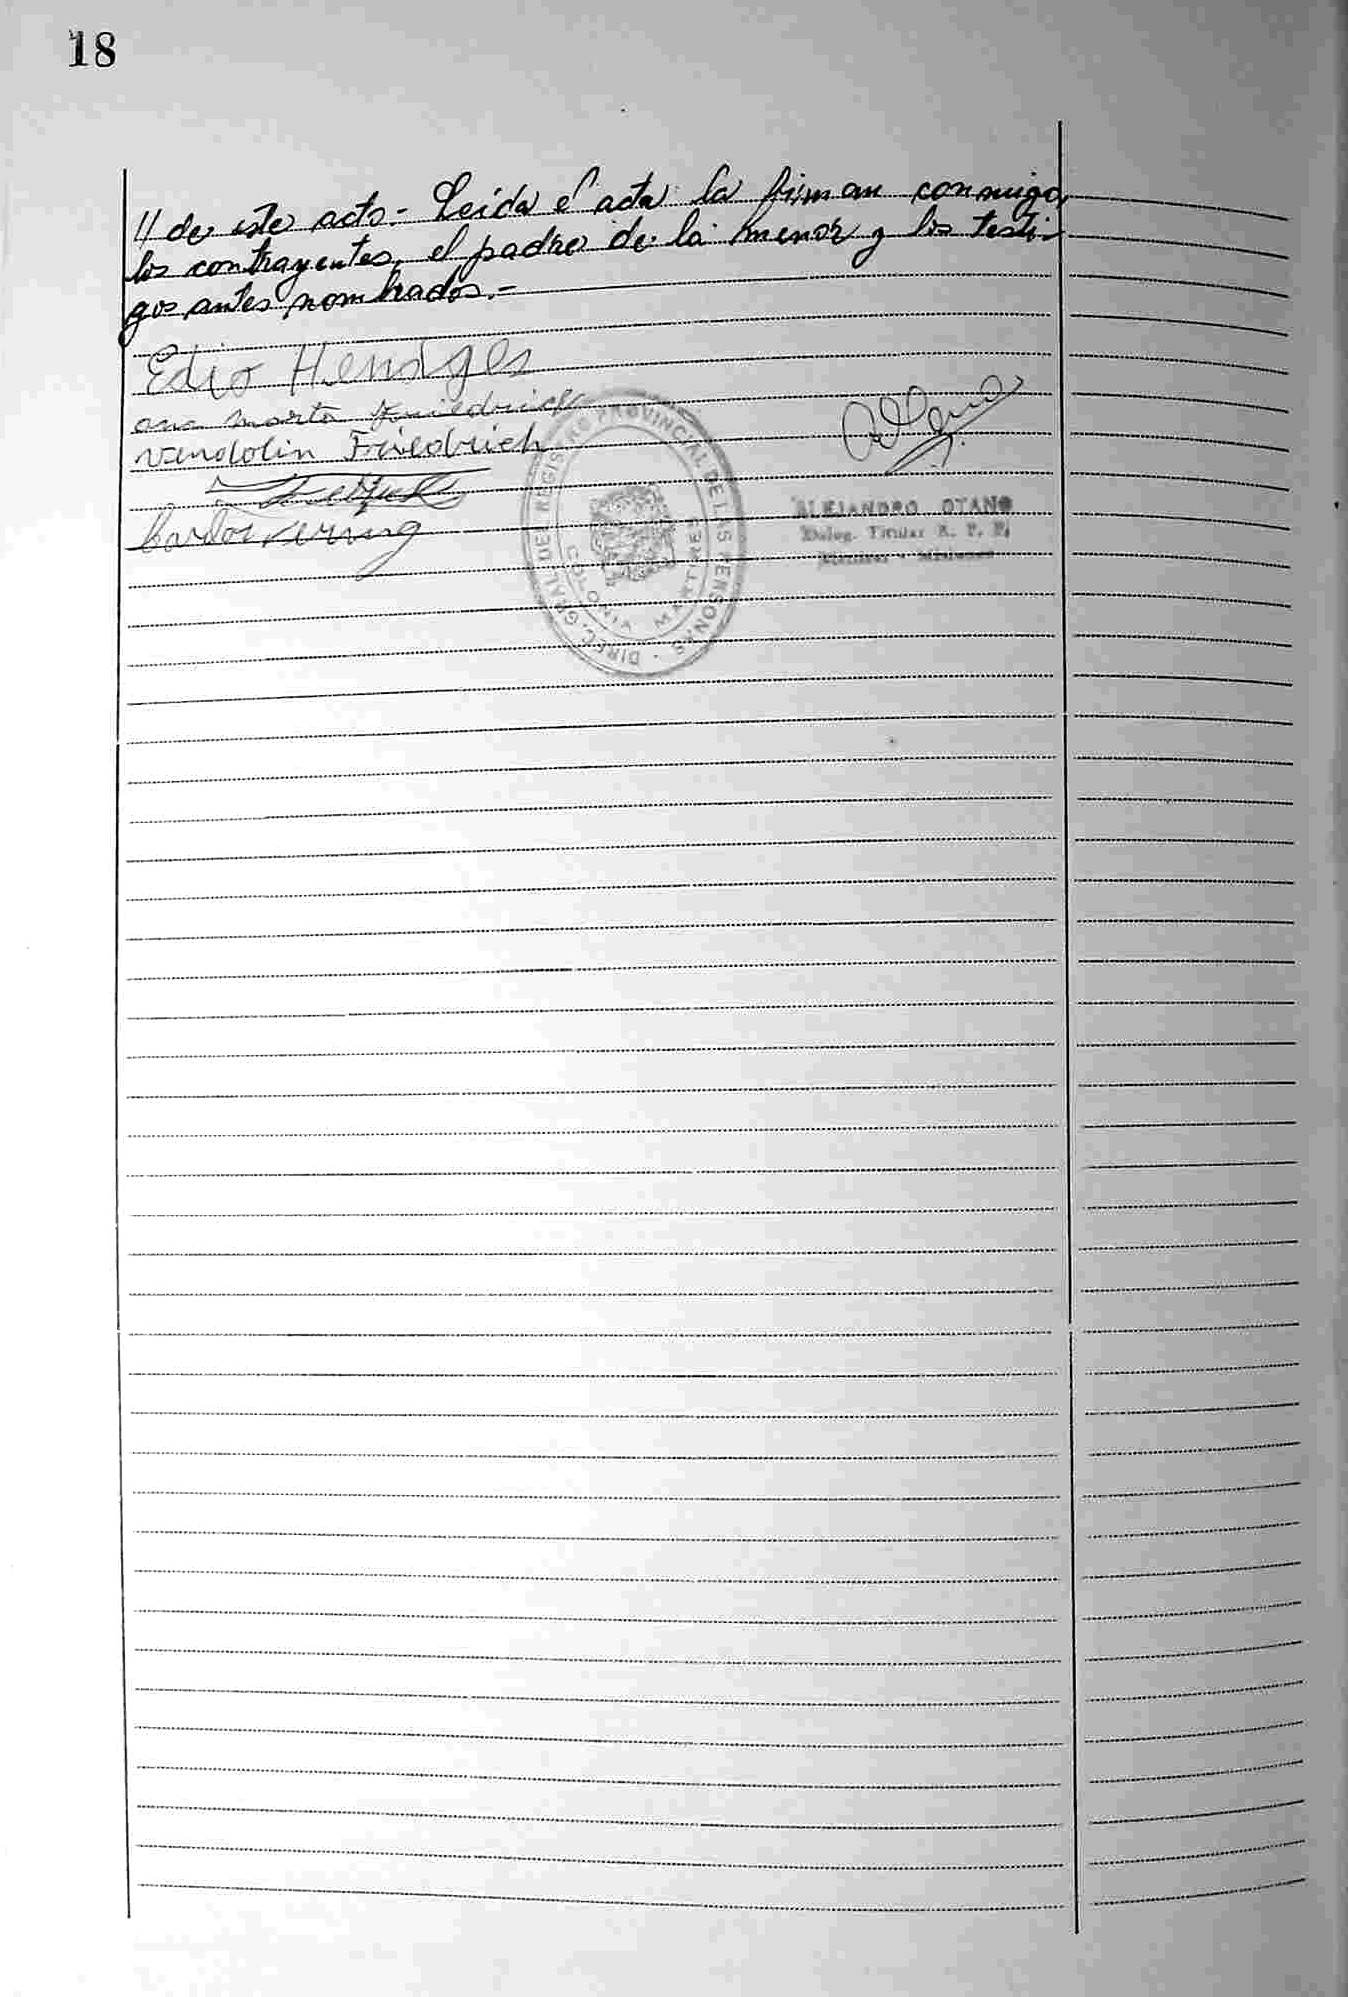 18
// de este acto.- Leída el acta la firman conmigo,
los contrayentes, el padre de la menor y los testi-
gos antes nombrados.-
Edio Hendges
ana marta Friedrich
vendolin Friedrich
Carlos
DIREC. GRAL. DEL REGISTRO PROVINCIAL DE LAS PERSONAS
COLONIA MARTIRES
ALEJANDRO OTANO
Deleg. Titular R. P. P.
Misiones